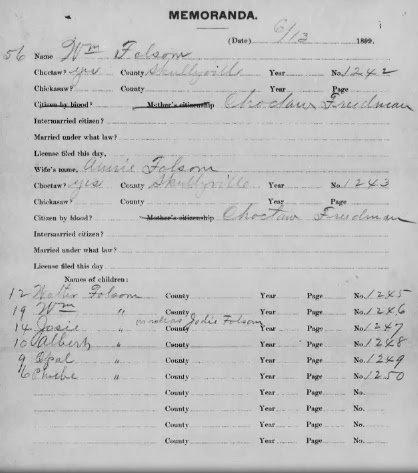 MEMORANDA.
(Date) 6/13 1899.
56 Name Wm Folsom
Choctaw? yes County Skullyville Year Page No. 1242
Chickasaw? County Year Page
Citizen by blood? Mother's citizenship Choctaw Freedman
Intermarried citizen?
Married under what law?
License filed this day,
Wife's name, Annie Folsom
Choctaw? yes County Skullyville Year Page No. 1243
Chickasaw? County Year Page
Citizen by blood? Mother's citizenship Choctaw Freedman
Intermarried citizen?
Married under what law?
License filed this day
Names of children:
12 Walter Folsom County Year Page No. 1245
19 Wm " County Year Page No. 1246
14 Josie " on rolls as Jodie Folsom County Year Page No. 1247
10 Albert " County Year Page No. 1248
9 Opal " County Year Page No. 1249
6 Phoebe " County Year Page No. 1250
County Year Page No.
County Year Page No.
County Year Page No.
County Year Page No.